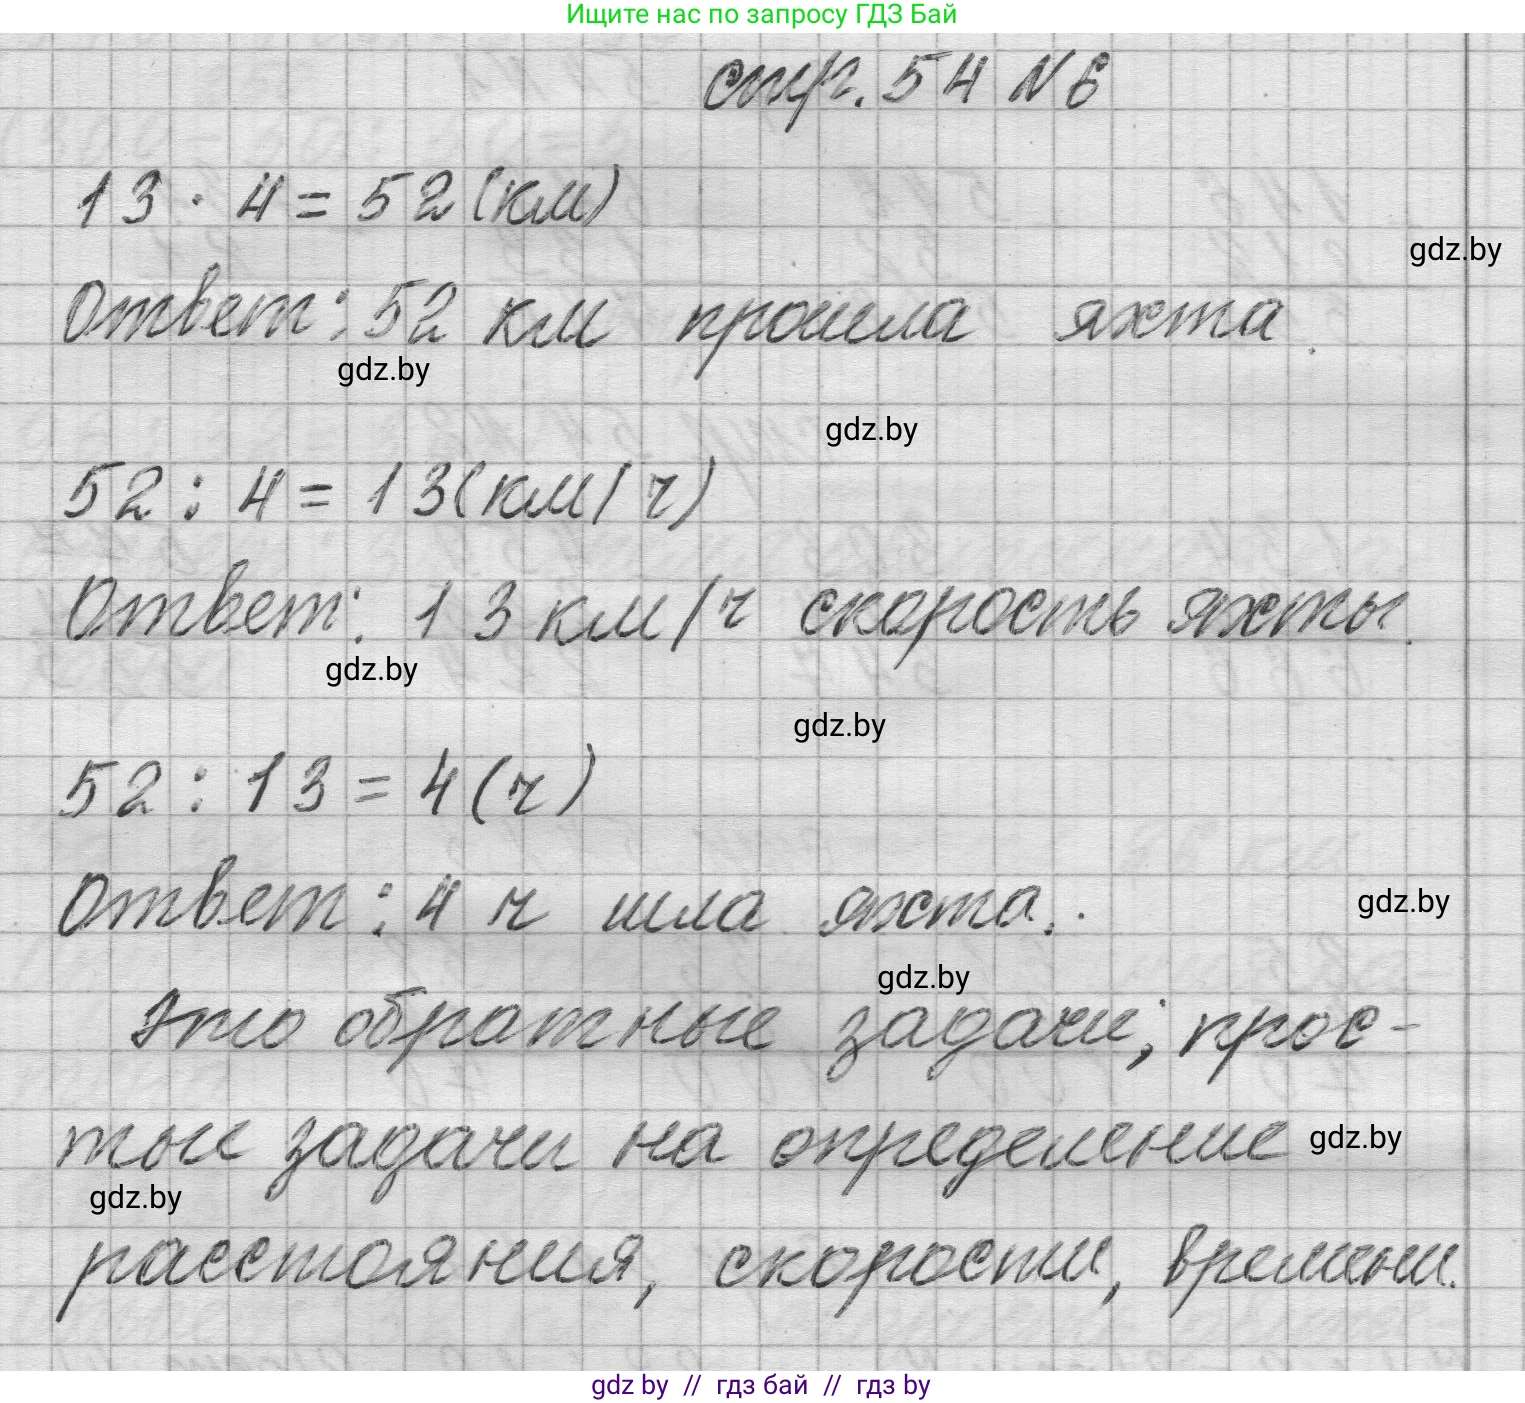 Ищите нас по запросу ГДЗ Бай
стр. 54 N 6
13 · 4 = 52 (км)
gdz.by
Ответ: 52 км прошла яхта.
gdz.by
gdz.by
52 : 4 = 13 (км/ч)
Ответ: 13 км/ч скорость яхты.
gdz.by
gdz.by
52 : 13 = 4 (ч)
Ответ: 4 ч шла яхта.
gdz.by
gdz.by
Это обратные задачи; прос-
тые задачи на определение
gdz.by
gdz.by
расстояния, скорости, времени.
gdz by // гдз бай // гдз by